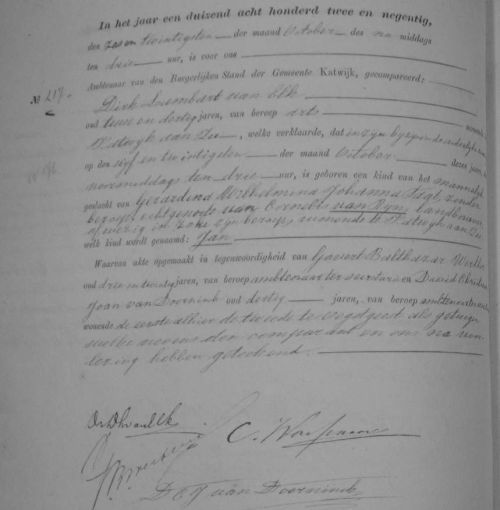 In het jaar een duizend acht honderd twee en negentig,
den zes en twintigsten der maand October des na middags
ten drie uur, is voor ons
Ambtenaar van den Burgerlijken Stand der Gemeente Katwijk, gecompareerd:
№ 217.
Dirk Lumbart van Elk
oud twee en dertig jaren, van beroep arts
Katwijk aan Zee, welke verklaarde, dat in zijn bijzijn
op den vijf en twintigsten der maand October dezes jaars
voormiddags ten drie uur, is geboren een kind van het mannelijk
geslacht van Gerardina Wilhelmina Johanna zonder
beroep echtgenoote van Cornelis van Rijn, landbouwer
afwezig in zake zijn beroep wonende te Katwijk aan Zee
welk kind wordt genaamd: Jan
Waarvan akte opgemaakt in tegenwoordigheid van Govert Balthazar
oud drie en twintig jaren, van beroep ambtenaar ter secretarie en David
Joan van Doorninck oud dertig jaren, van beroep ambtenaar
wonende de eerste alhier de tweede te Oegstgeest als getuigen
welke nevens den comparant en ons na voor-
lezing hebben geteekend.
Dr D L van Elk
C.
D E J van Doorninck